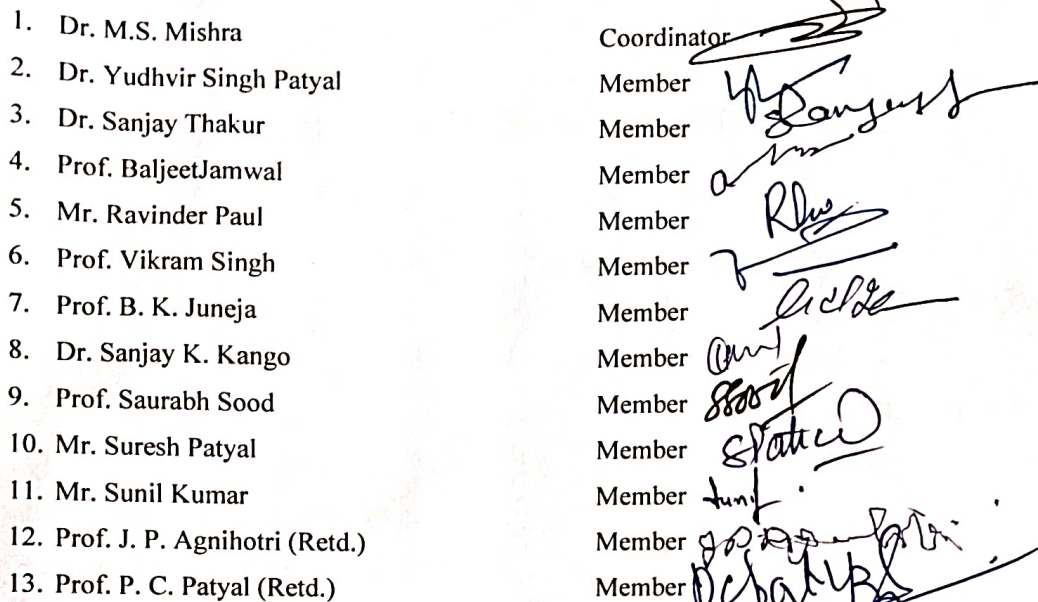 1. Dr. M.S. Mishra Coordinator
2. Dr. Yudhvir Singh Patyal Member
3. Dr. Sanjay Thakur Member
4. Prof. BaljeetJamwal Member
5. Mr. Ravinder Paul Member
6. Prof. Vikram Singh Member
7. Prof. B. K. Juneja Member
8. Dr. Sanjay K. Kango Member
9. Prof. Saurabh Sood Member
10. Mr. Suresh Patyal Member
11. Mr. Sunil Kumar Member
12. Prof. J. P. Agnihotri (Retd.) Member
13. Prof. P. C. Patyal (Retd.) Member